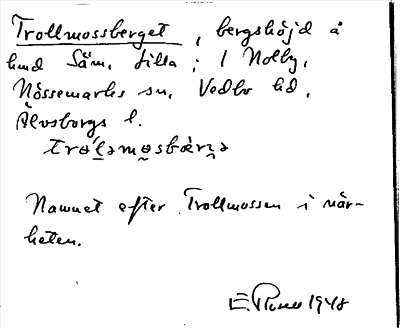 Trollmossberget, bergshöjd å
lmd Säm. tilla; 1 Nolby,
Nössemarks sn, Vedbo hd,
Älvsborgs l.
Namnet efter Trollmossen i när-
heten.
E. Rosell 1948